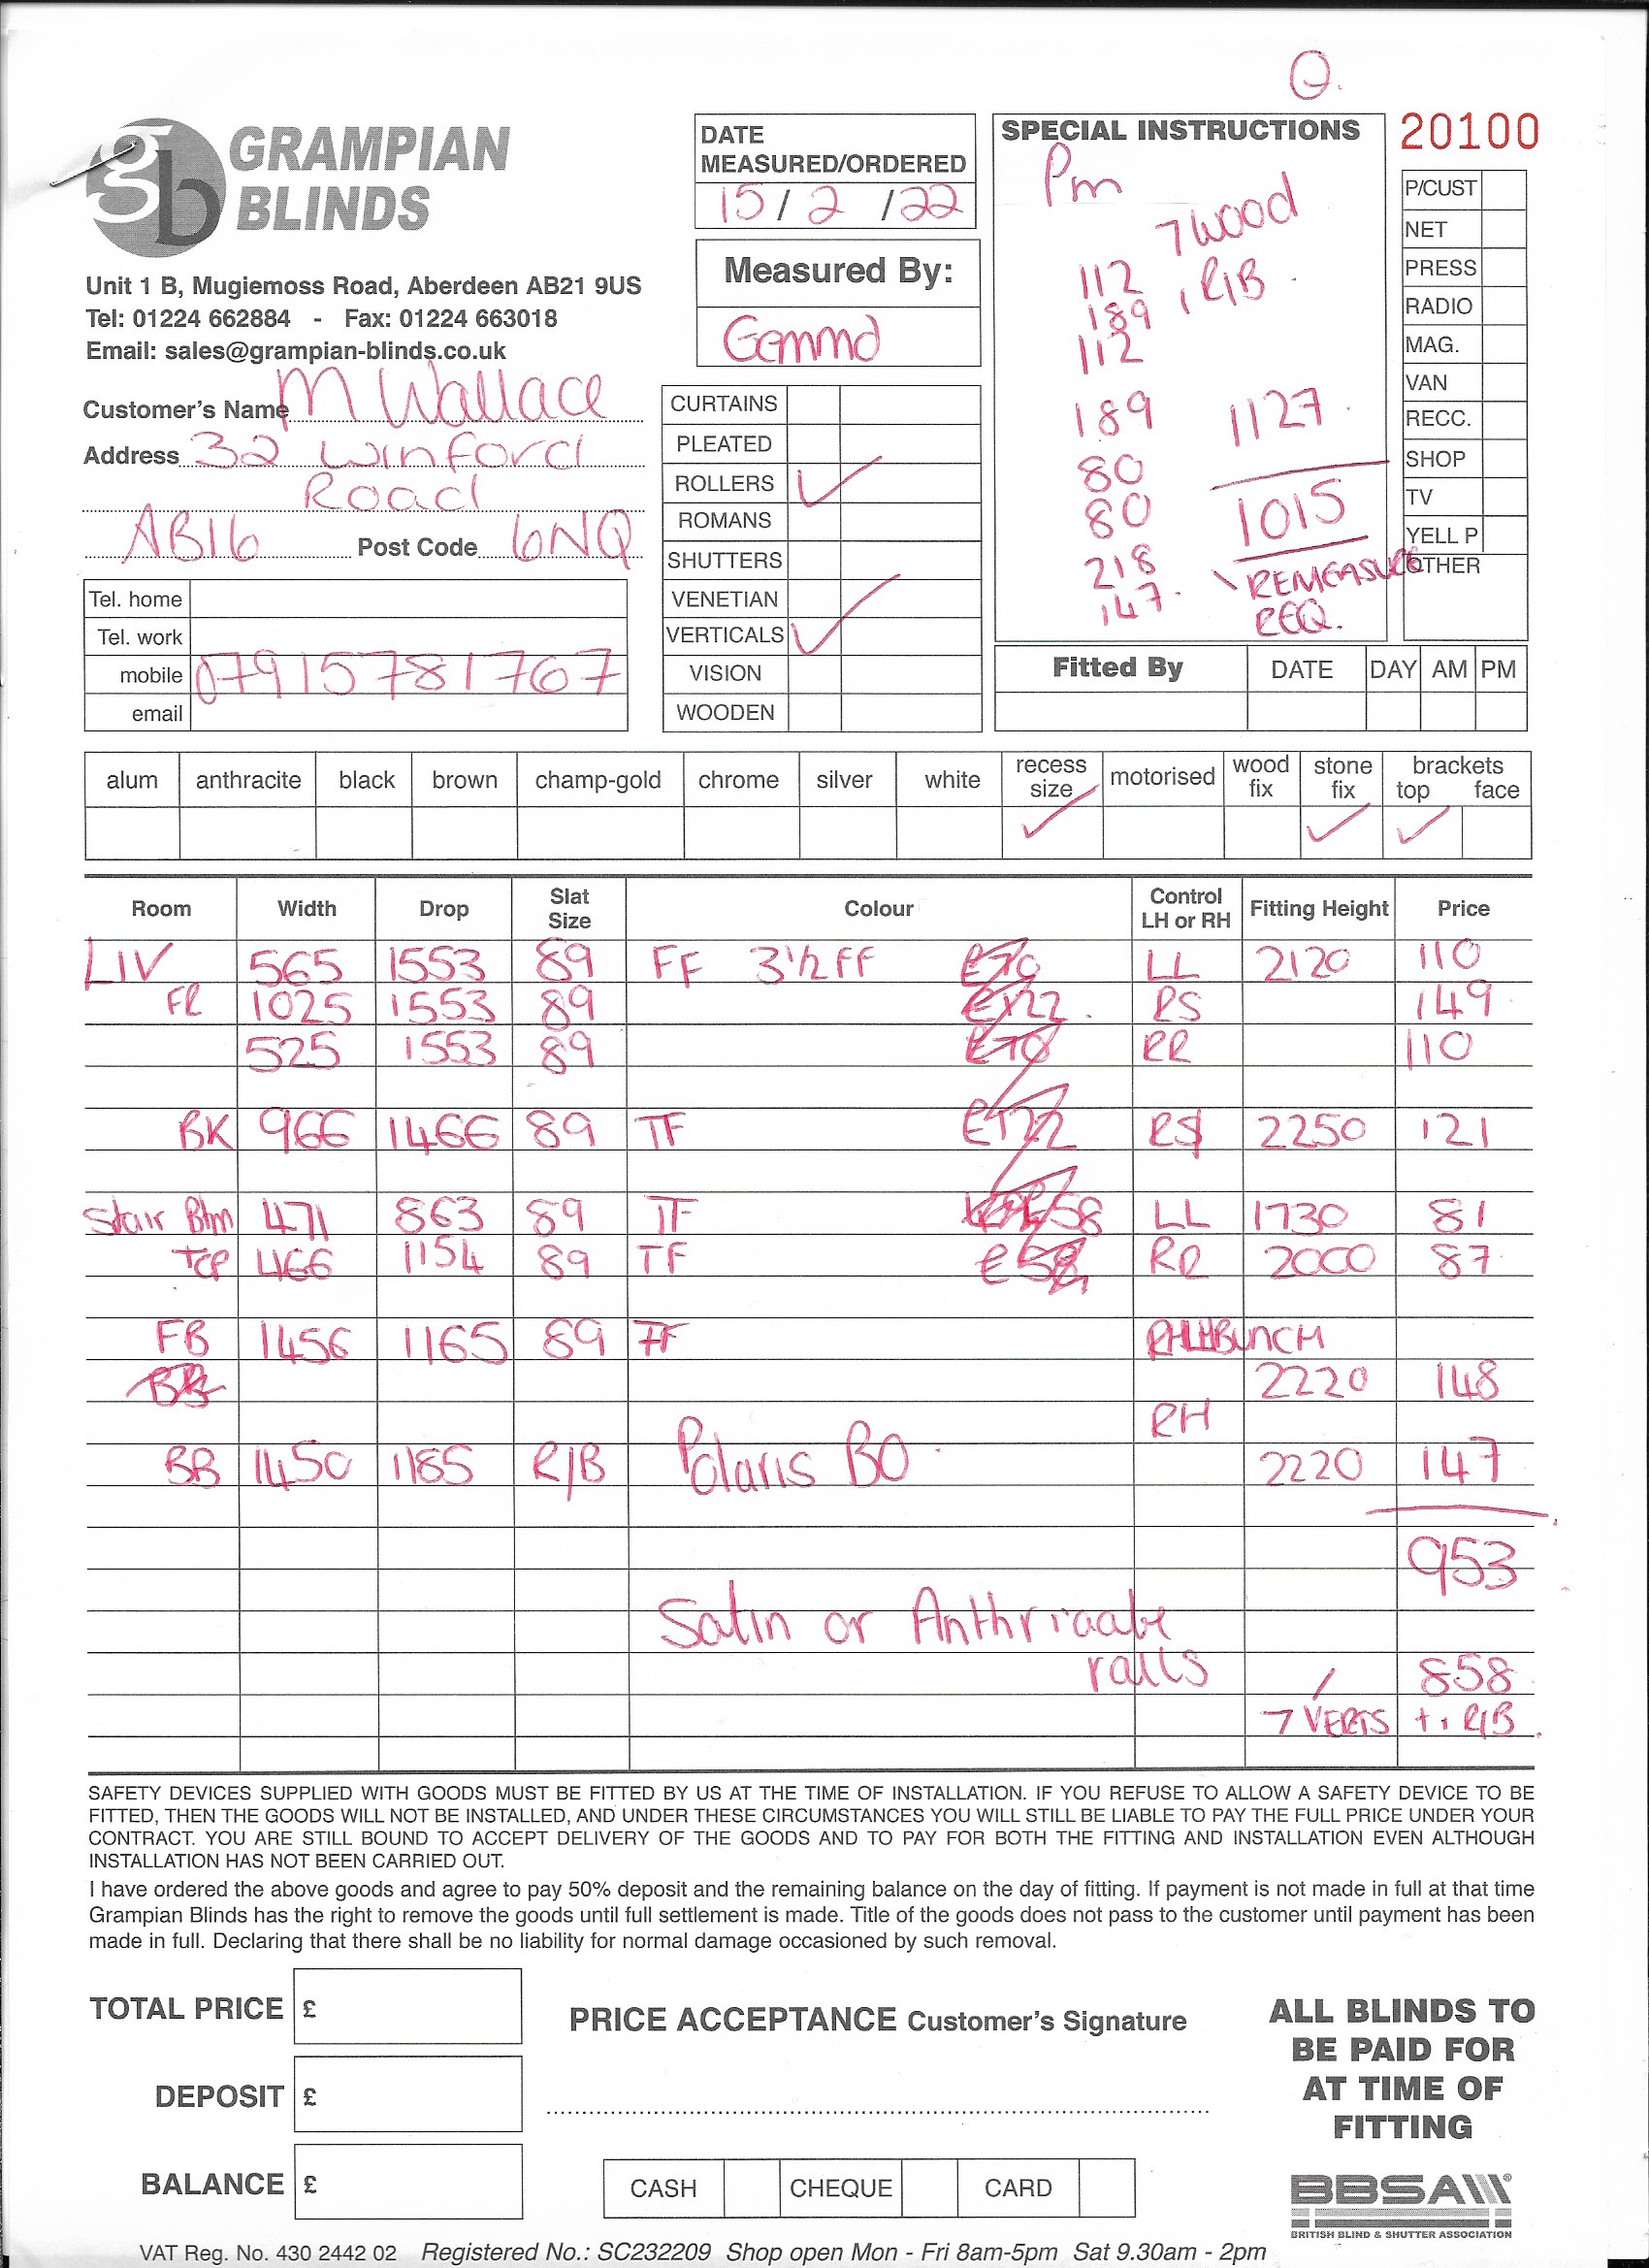 Q.
GRAMPIAN
BLINDS
Unit 1 B, Mugiemoss Road, Aberdeen AB21 9US
Tel: 01224 662884 - Fax: 01224 663018
Email: sales@grampian-blinds.co.uk
Customer's Name M Wallace
Address 32 Winford
Road
AB16 Post Code 6NQ
Tel. home
Tel. work
mobile 07915781767
email
DATE
MEASURED/ORDERED
15 / 2 / 22
Measured By:
Gemma
CURTAINS
PLEATED
ROLLERS ✓
ROMANS
SHUTTERS
VENETIAN
VERTICALS ✓
VISION
WOODEN
SPECIAL INSTRUCTIONS
Pm
7 wood
112 1 R/B.
189
112
189 1127.
80
80 1015
218 REMEASURE
147. REQ.
20100
P/CUST
NET
PRESS
RADIO
MAG.
VAN
RECC.
SHOP
TV
YELL P
OTHER
Fitted By DATE DAY AM PM
alum anthracite black brown champ-gold chrome silver white recess size motorised wood fix stone fix brackets top face
✓ ✓ ✓
Room Width Drop Slat Size Colour Control LH or RH Fitting Height Price
LIV 565 1553 89 FF 3½ FF £70 LL 2120 110
FR 1025 1553 89 RS 149
525 1553 89 £70 RR 110
BK 966 1466 89 TF RS 2250 121
Stair Btm 471 863 89 TF 58 LL 1730 81
Top 466 1154 89 TF £58 RR 2000 87
FB 1456 1165 89 FF BUNCH
2220 148
RH
BB 1450 1185 R/B Polaris BO. 2220 147
953
Satin or Anthriacate
rails
858
7 VERTS + 1 R/B.
SAFETY DEVICES SUPPLIED WITH GOODS MUST BE FITTED BY US AT THE TIME OF INSTALLATION. IF YOU REFUSE TO ALLOW A SAFETY DEVICE TO BE
FITTED, THEN THE GOODS WILL NOT BE INSTALLED, AND UNDER THESE CIRCUMSTANCES YOU WILL STILL BE LIABLE TO PAY THE FULL PRICE UNDER YOUR
CONTRACT. YOU ARE STILL BOUND TO ACCEPT DELIVERY OF THE GOODS AND TO PAY FOR BOTH THE FITTING AND INSTALLATION EVEN ALTHOUGH
INSTALLATION HAS NOT BEEN CARRIED OUT.
I have ordered the above goods and agree to pay 50% deposit and the remaining balance on the day of fitting. If payment is not made in full at that time
Grampian Blinds has the right to remove the goods until full settlement is made. Title of the goods does not pass to the customer until payment has been
made in full. Declaring that there shall be no liability for normal damage occasioned by such removal.
TOTAL PRICE £
DEPOSIT £
BALANCE £
PRICE ACCEPTANCE Customer's Signature
CASH CHEQUE CARD
ALL BLINDS TO
BE PAID FOR
AT TIME OF
FITTING
BBSA
BRITISH BLIND & SHUTTER ASSOCIATION
VAT Reg. No. 430 2442 02 Registered No.: SC232209 Shop open Mon - Fri 8am-5pm Sat 9.30am - 2pm